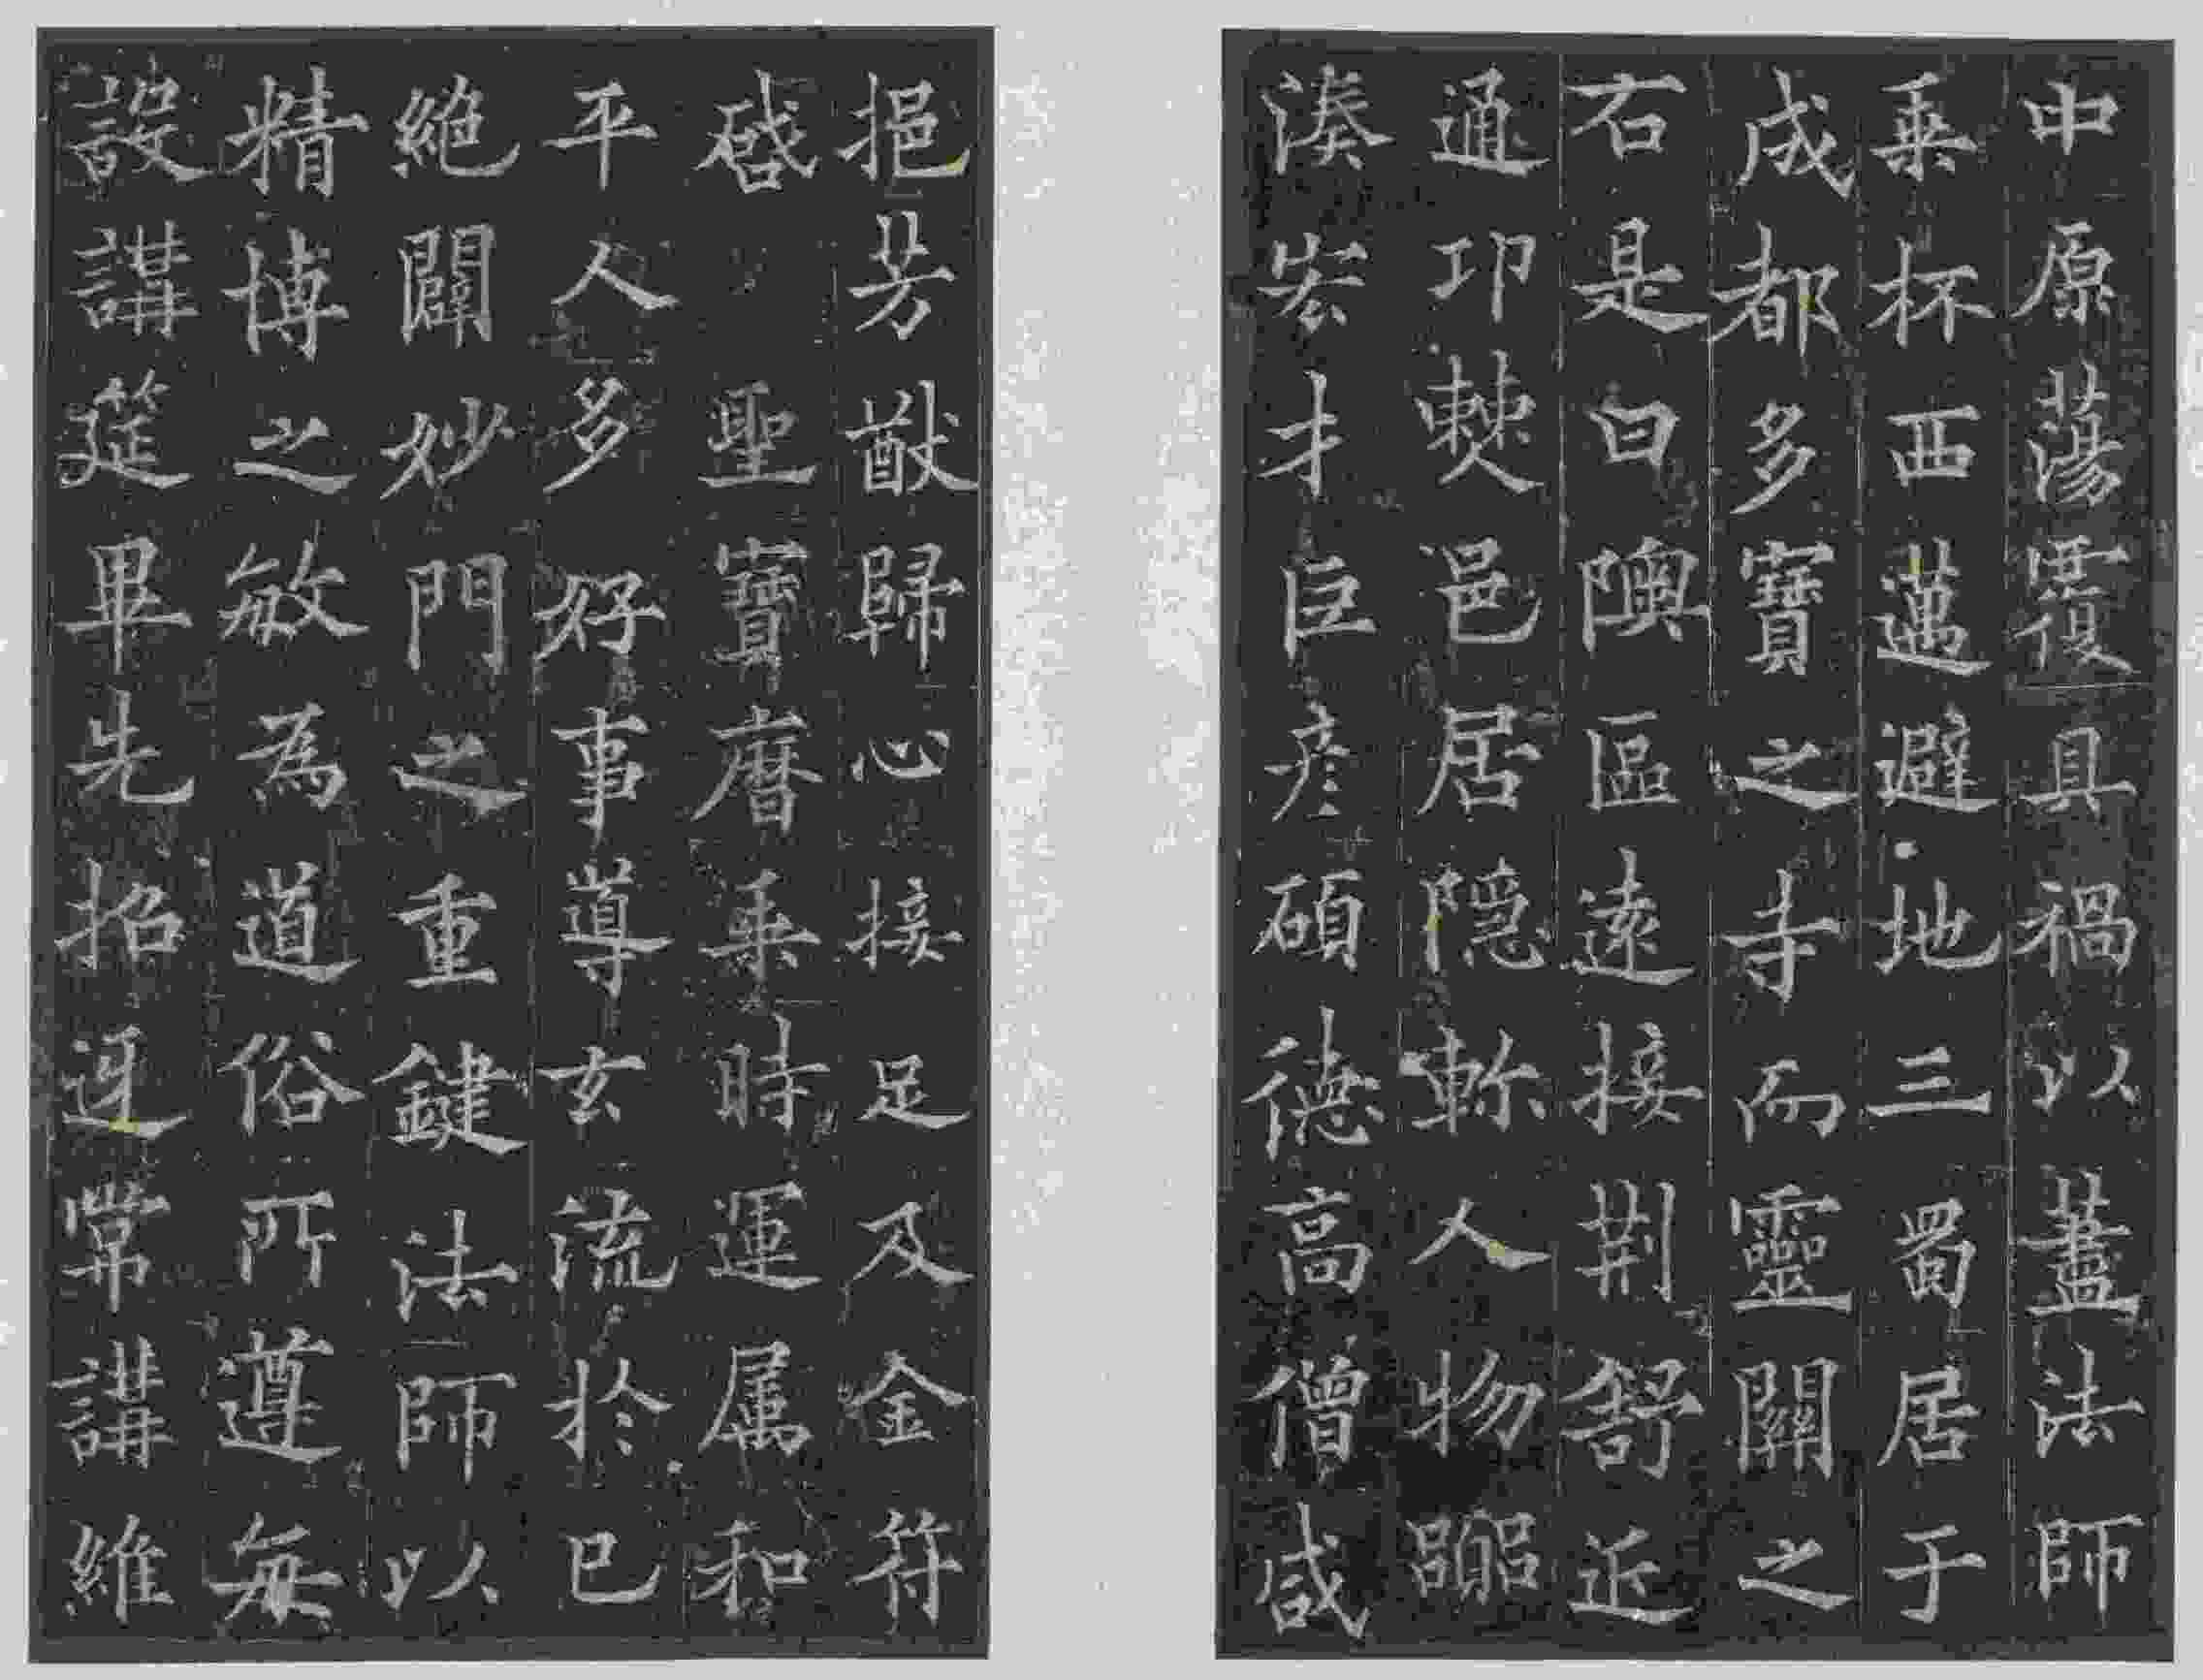 中原蕩覆具禍以藎法師
乗杯西邁避地三蜀居于
成都多寶之寺而靈關之
右是曰隩區遠接荆舒近
通卭僰邑居隱軫人物嚻
湊宏才巨彦碩德高僧咸
挹芳猷歸心接足及金符
啓聖寶曆乗時運属和
平人多好事導玄流於已
絶闢妙門之重鍵法師以
精博之敏為道俗所遵每
設講筵畢先招迓常講維